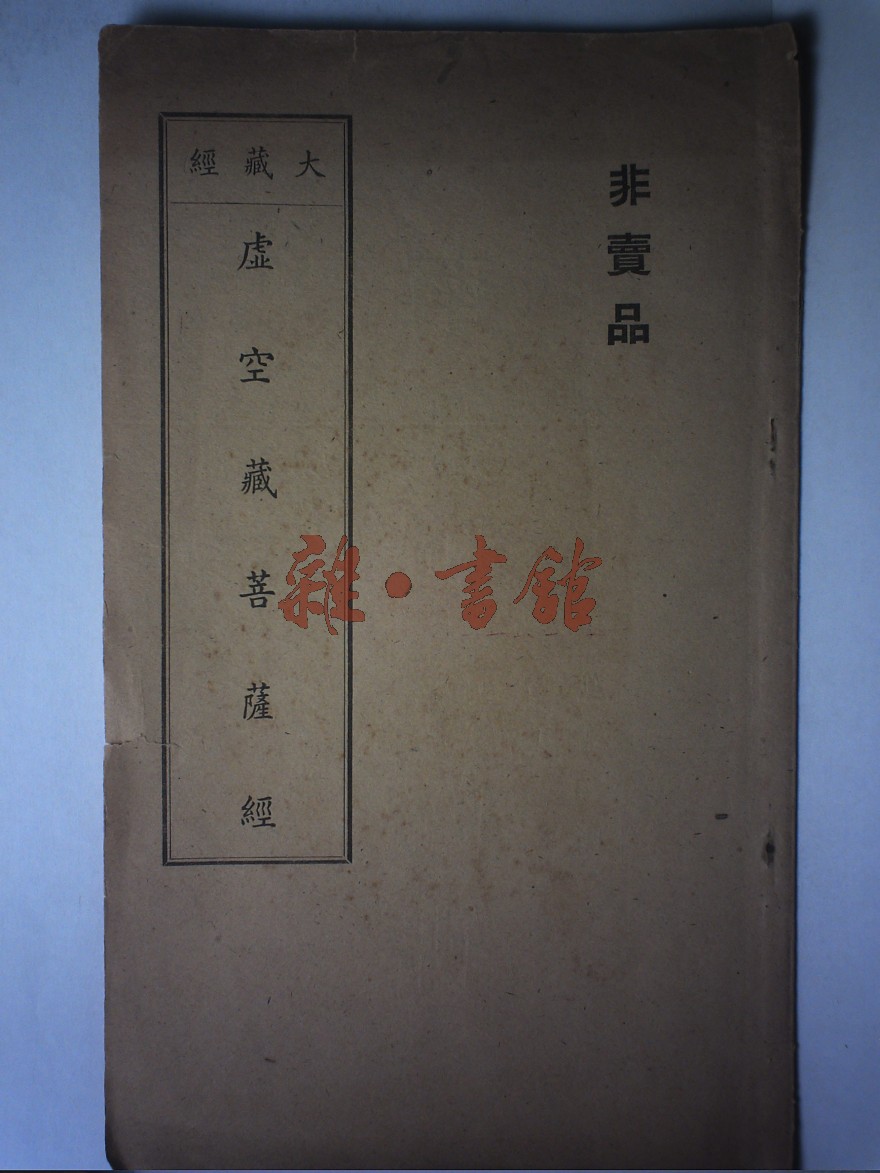 非賣品
大藏經
虛空藏菩薩經
雜·書館